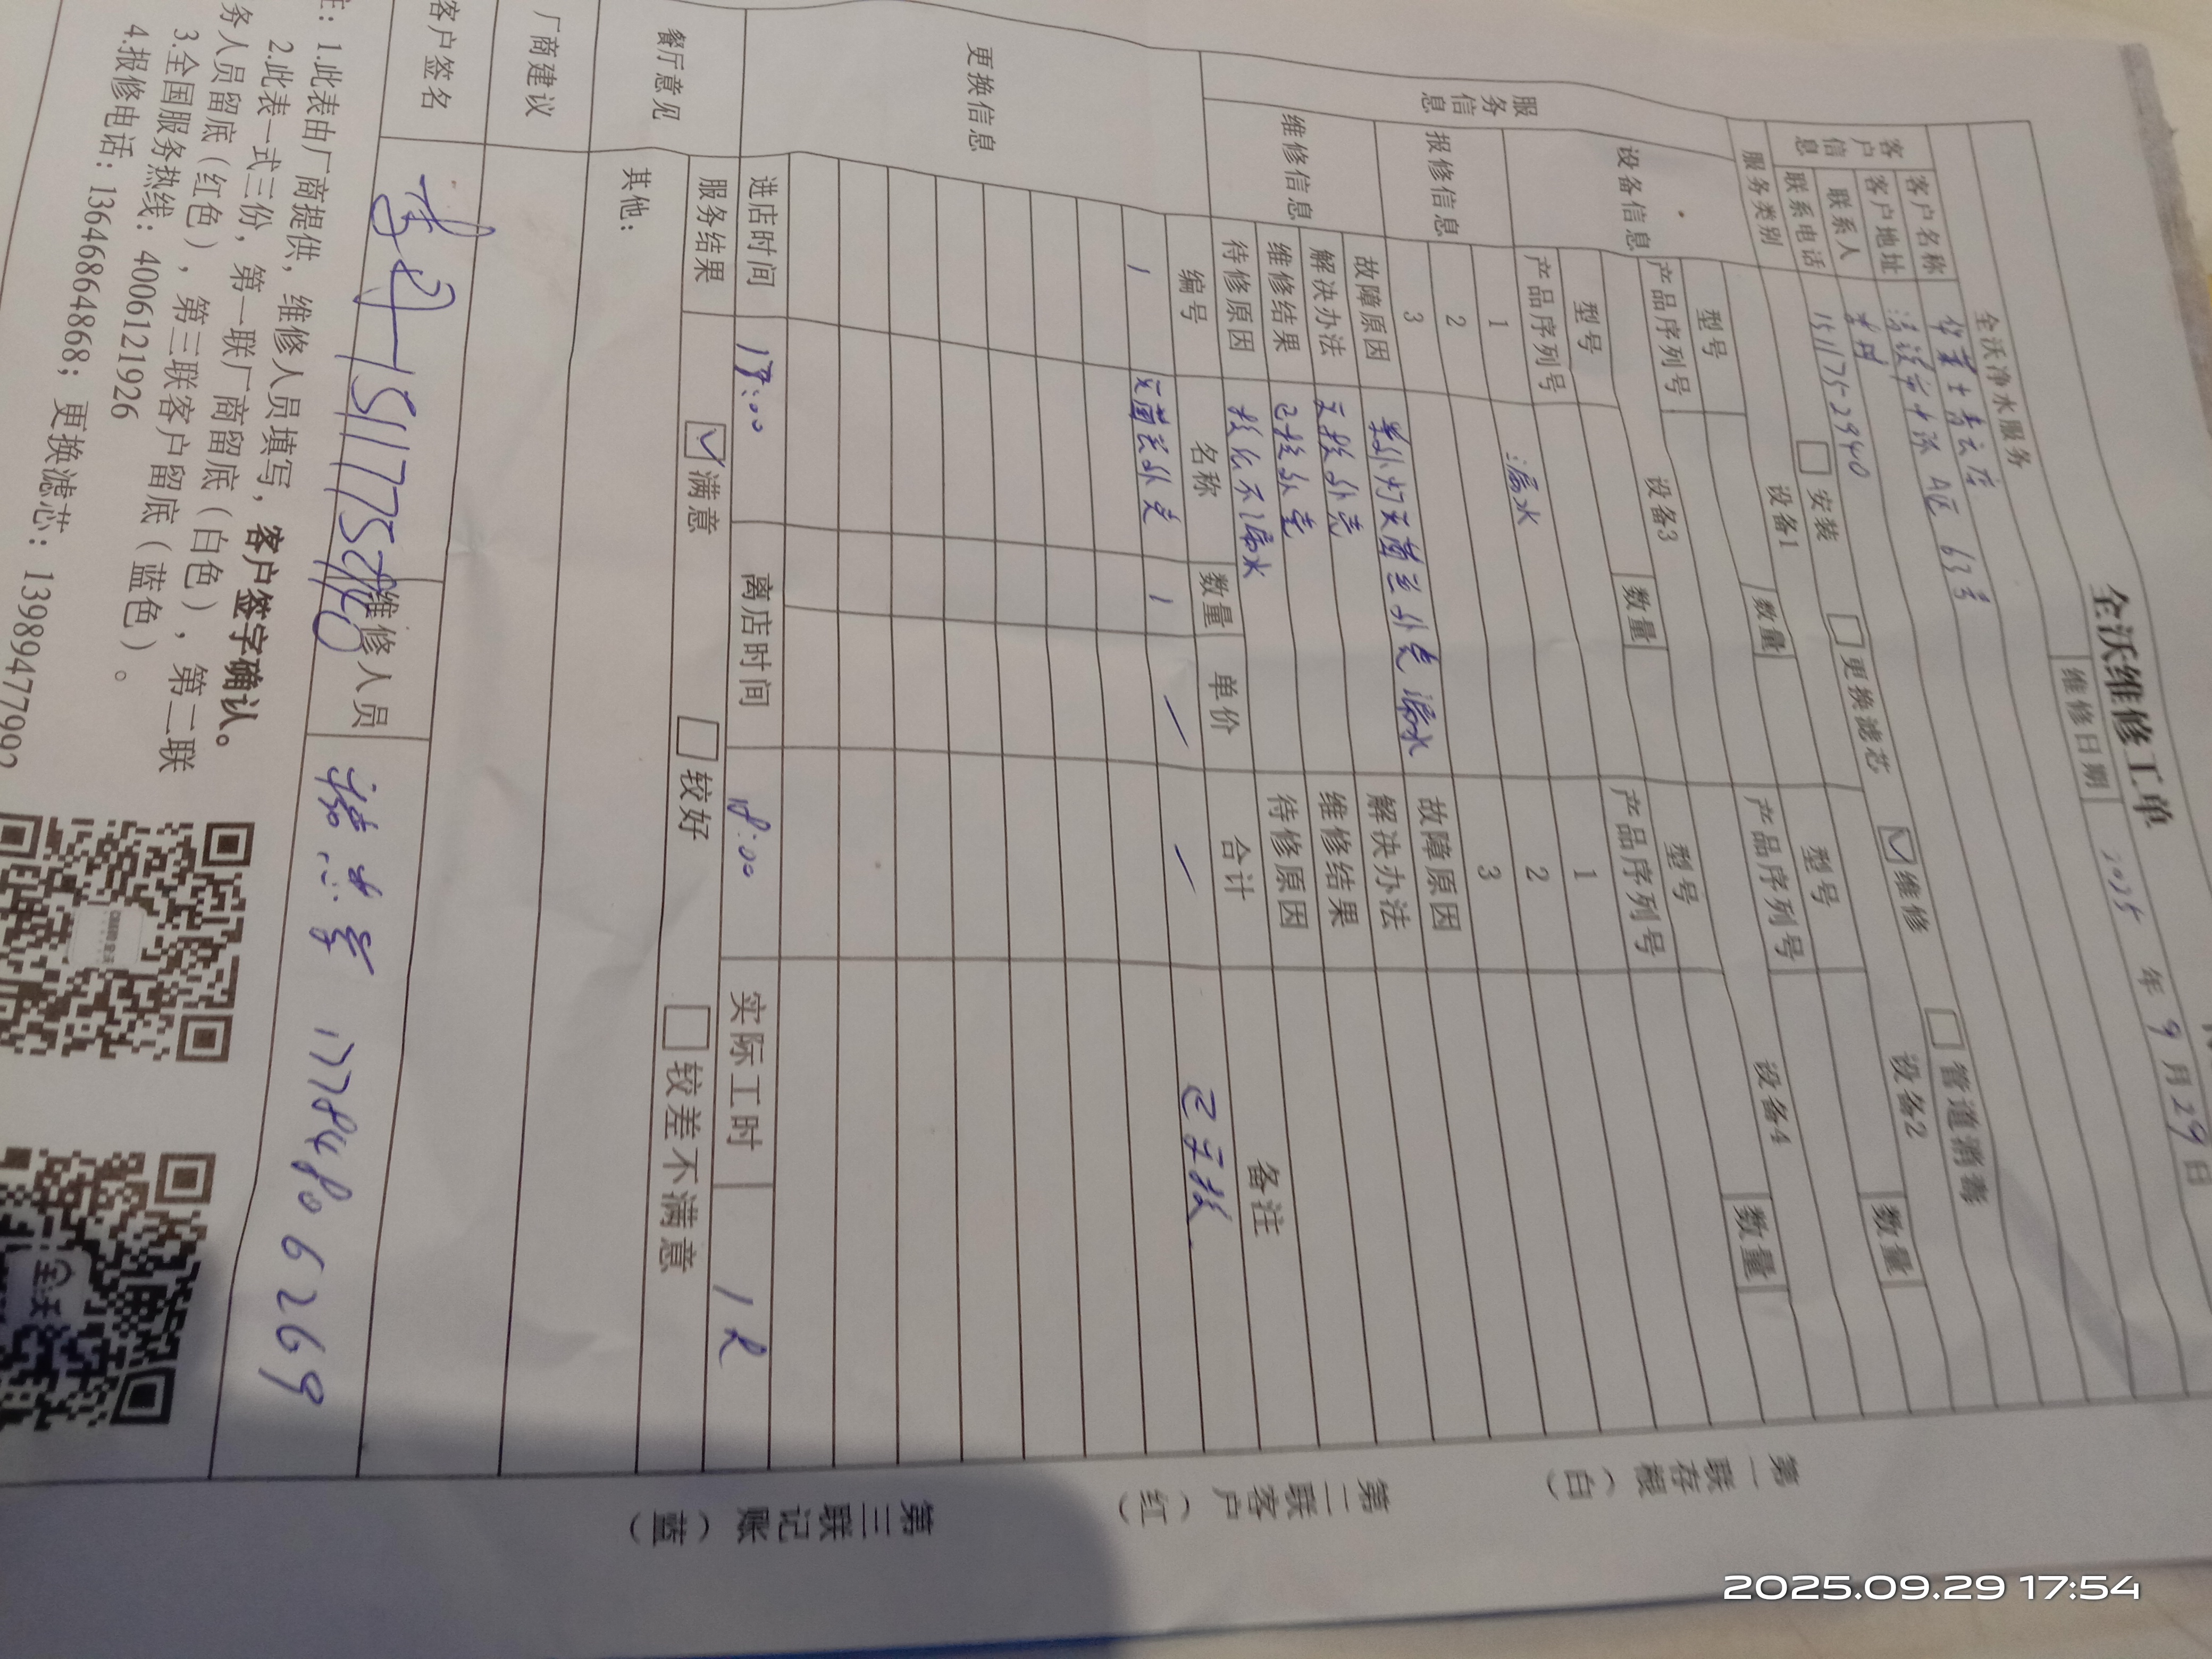 全沃维修工单
全沃净水服务
维修日期 2025 年 9 月 29 日
客户信息
客户名称
客户地址 A区 63号
联系人
联系电话 1511752940
服务类别 安装 更换滤芯 ☑维修 管道消毒
服务信息
设备信息
设备1 数量 设备2 数量
型号 型号
产品序列号 产品序列号
设备3 数量 设备4 数量
型号 型号
产品序列号 产品序列号
报修信息
1 漏水 1
2 2
3 3
维修信息
故障原因 紫外灯灭菌器外壳漏水 故障原因
解决办法 更换外壳 解决办法
维修结果 已换外壳 维修结果
待修原因 换后不漏水 待修原因
更换信息
编号 名称 数量 单价 合计 备注
1 灭菌器外壳 1 / / 已更换
进店时间 17:00 离店时间 18:00 实际工时 1h
餐厅意见
服务结果 ☑满意 较好 较差不满意
其他：
厂商建议
客户签名 15117752940 维修人员 17784806269
注：1.此表由厂商提供，维修人员填写，客户签字确认。
2.此表一式三份，第一联厂商留底（白色），第二联
务人员留底（红色），第三联客户留底（蓝色）。
3.全国服务热线：4006121926
4.报修电话：13646864868；更换滤芯：13989477992
第一联存根（白）
第二联客户（红）
第三联记账（蓝）
全沃
2025.09.29 17:54